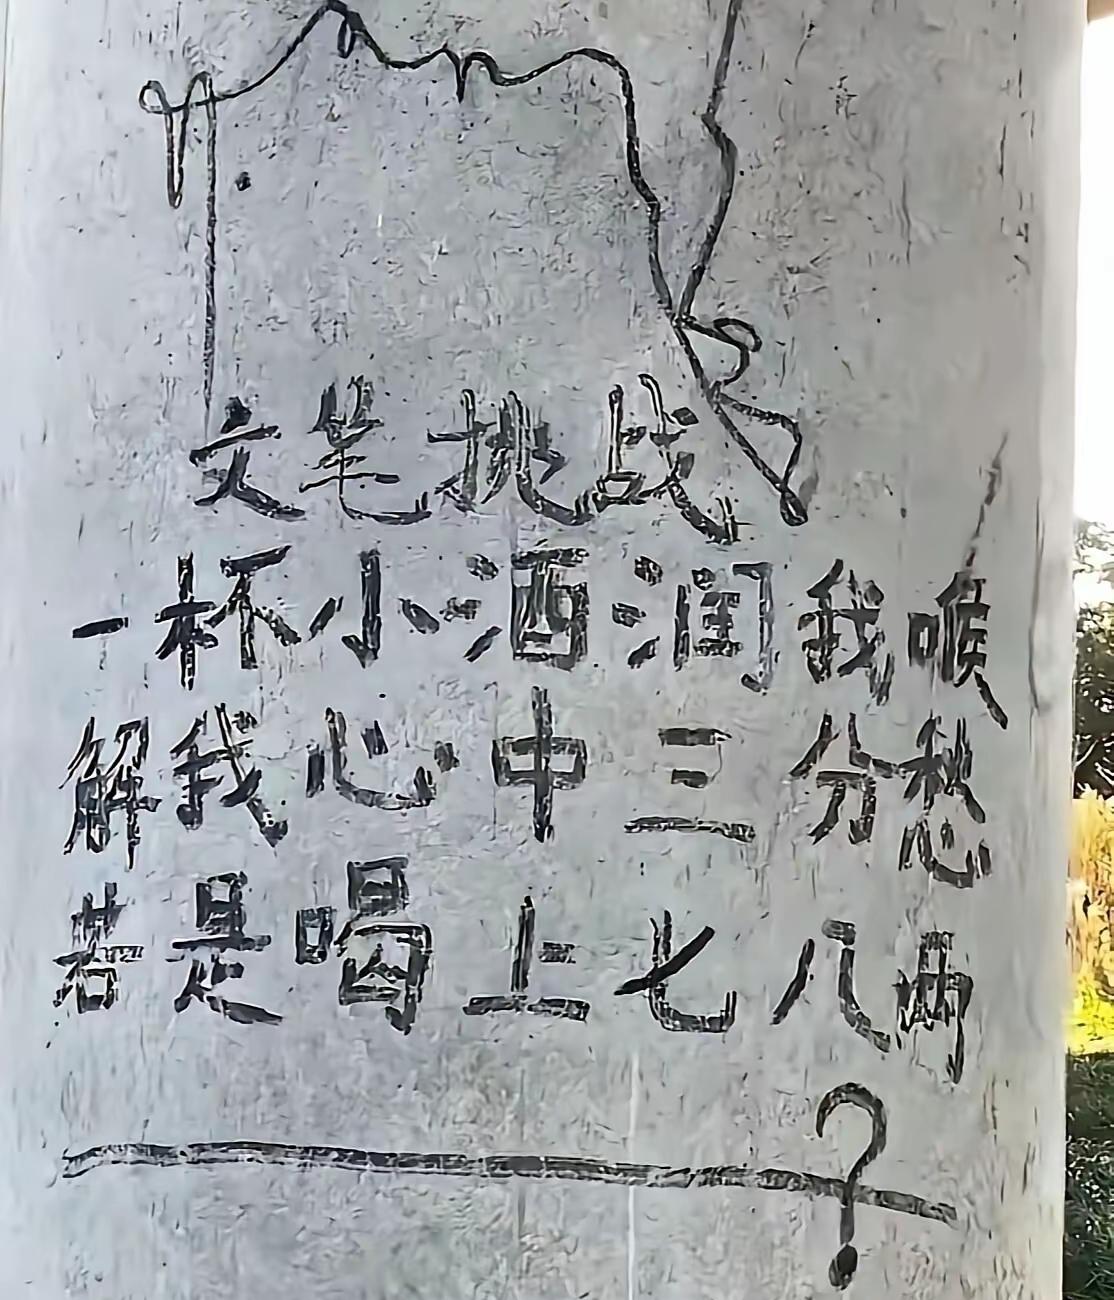 文笔挑战
一杯小酒润我喉
解我心中三分愁
若是喝上七八两
?